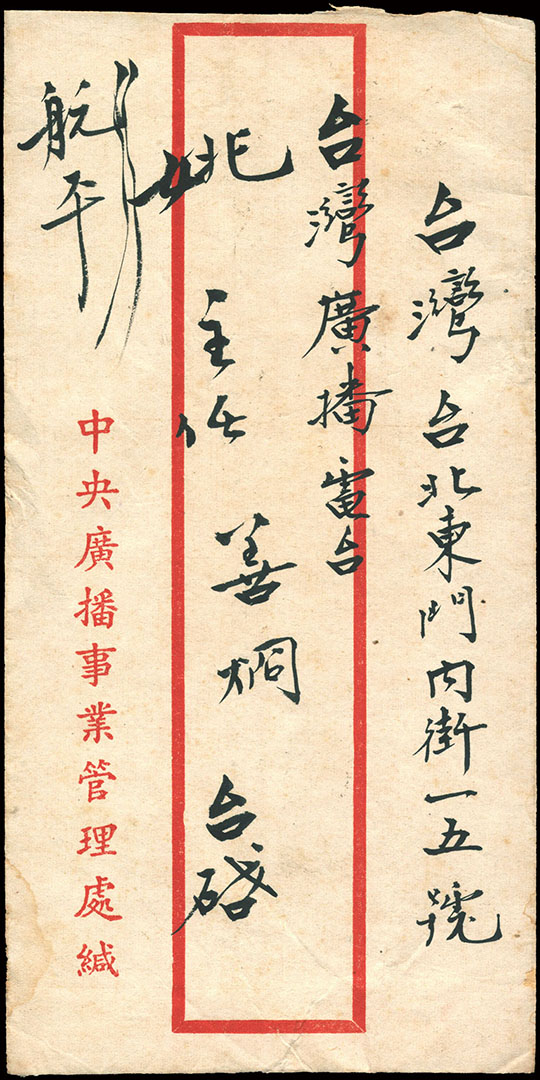 台灣台北東門內街一五號
台灣廣播電台
姚主任善炯台啓
航平
中央廣播事業管理處緘